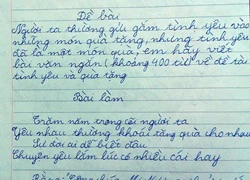 Đề bài
Người ta thường gửi gắm tình yêu vào
những món quà tặng, nhưng tình yêu
đã là một món quà, em hãy viết
bài văn ngắn (khoảng 400 từ) về đề tài
tình yêu và quà tặng
Bài làm
Trăm năm trong cõi người ta
Yêu nhau thường khoái tặng quà cho nhau
Sự đời ai dễ biết đâu
Chuyện yêu lắm lúc có nhiều cái hay